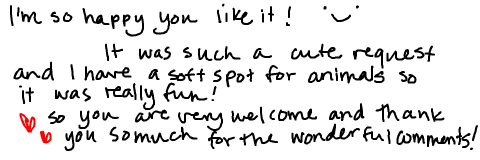 I'm so happy you like it! 
It was such a cute request
and I have a soft spot for animals so
it was really fun!
so you are very welcome and thank
you so much for the wonderful comments!